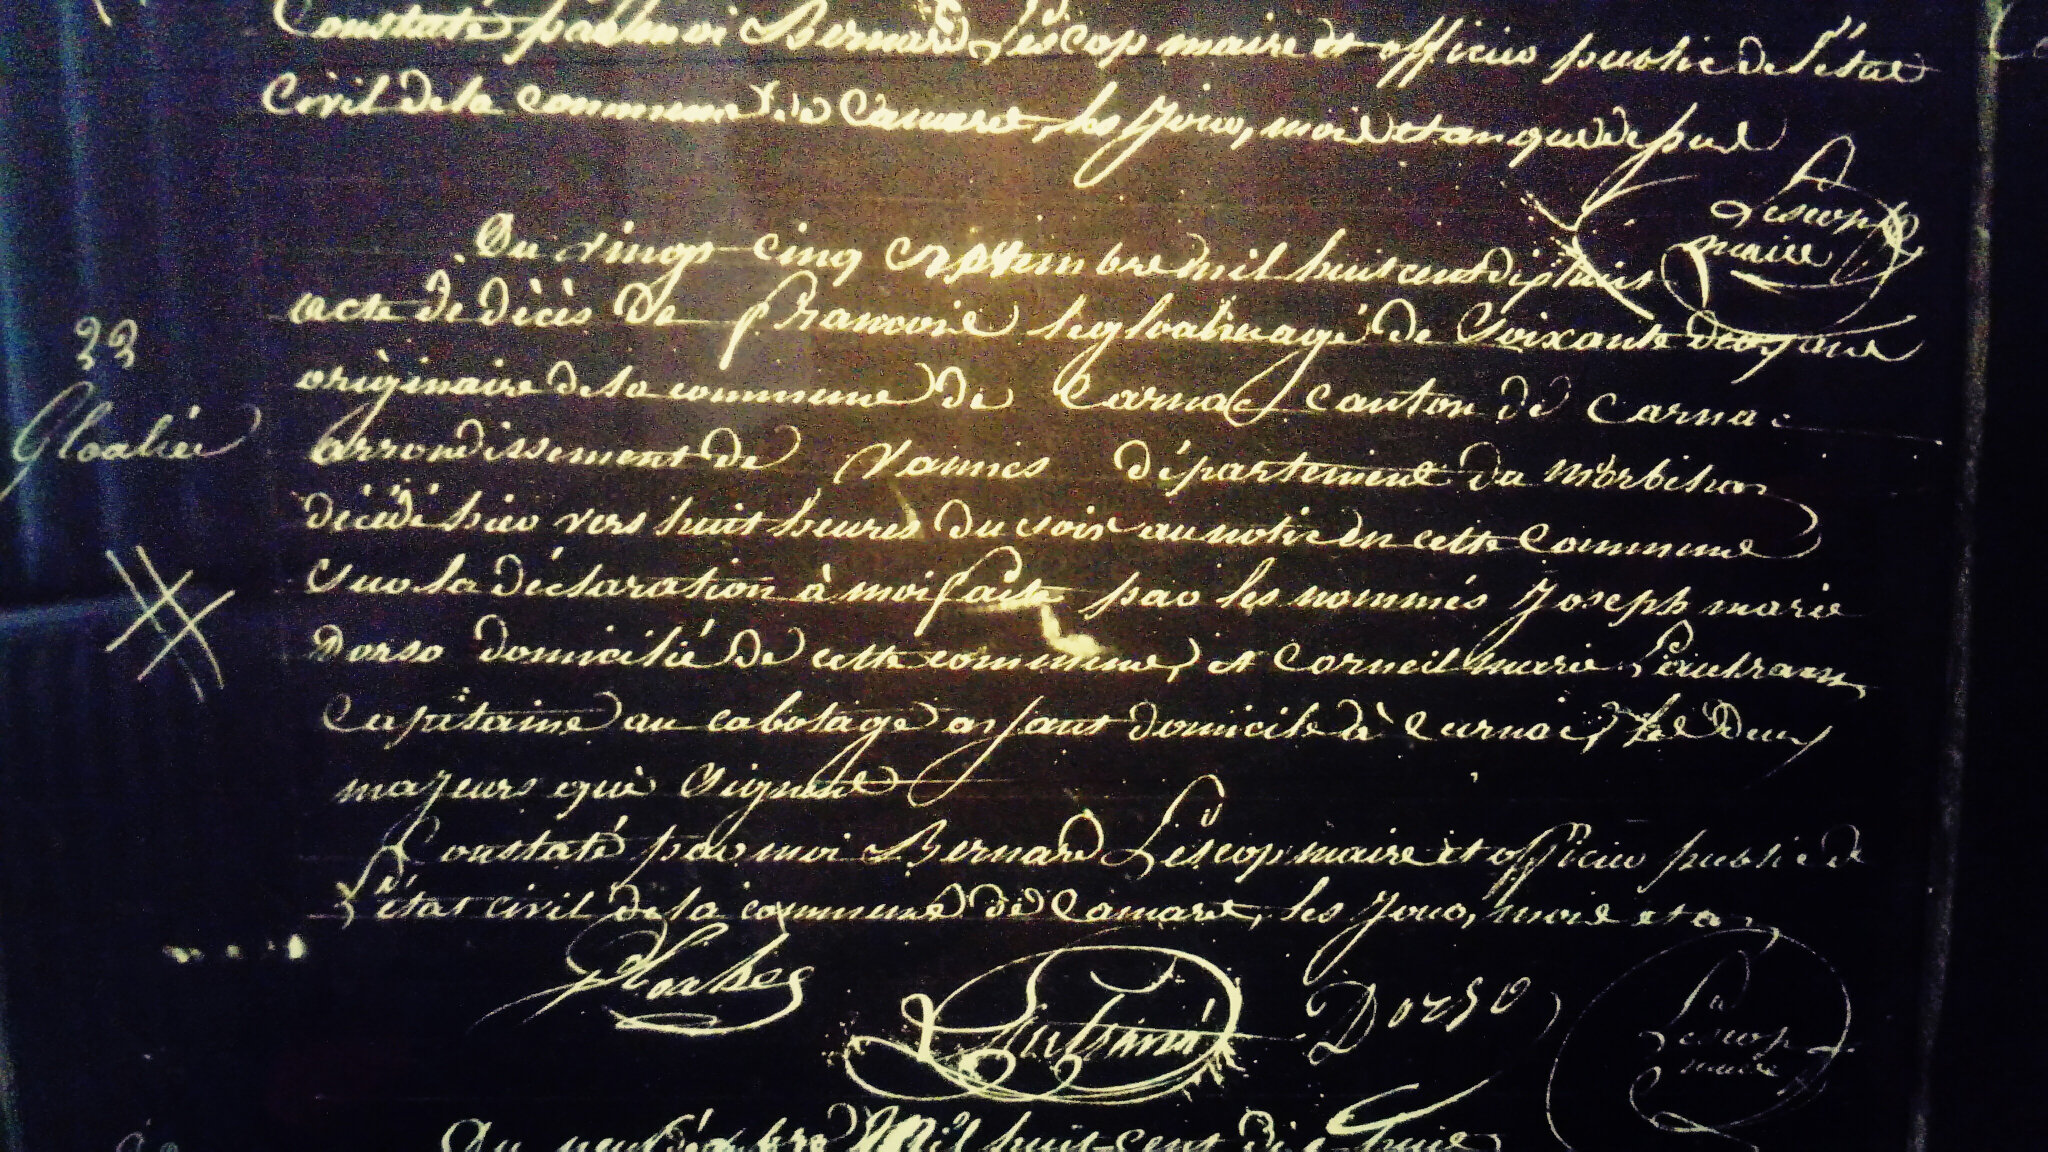 Constaté par moi Bernard Lescop maire et officier public de L'état
Civil de la commune de Camaret, les Jour, mois et an que de
Lescop
maire
Du vingt cinq septembre mil huit cent dix huit
acte de décès de françois agé de Soixante ans
22
originaire de la commune de Carnac Canton de Carnac
Gloahec
arrondissement de Vannes département du Morbihan
décédé hier vers huit heures du soir au notic en cette Commune
Sur la déclaration à moi faite par les nommés Joseph marie
Dorso domicilié de cette commune, et Corneil marie Lautram
Capitaine au cabotage ayant domicile à Carnac, Deux
majeurs qui Signent
Constaté par moi Bernard Lescop maire et officier public de
L'état civil de la commune de Camaret, les Jour, mois et an
Dorso
Lescop
maire
Du neuf décembre Mil huit-Cent dix huit